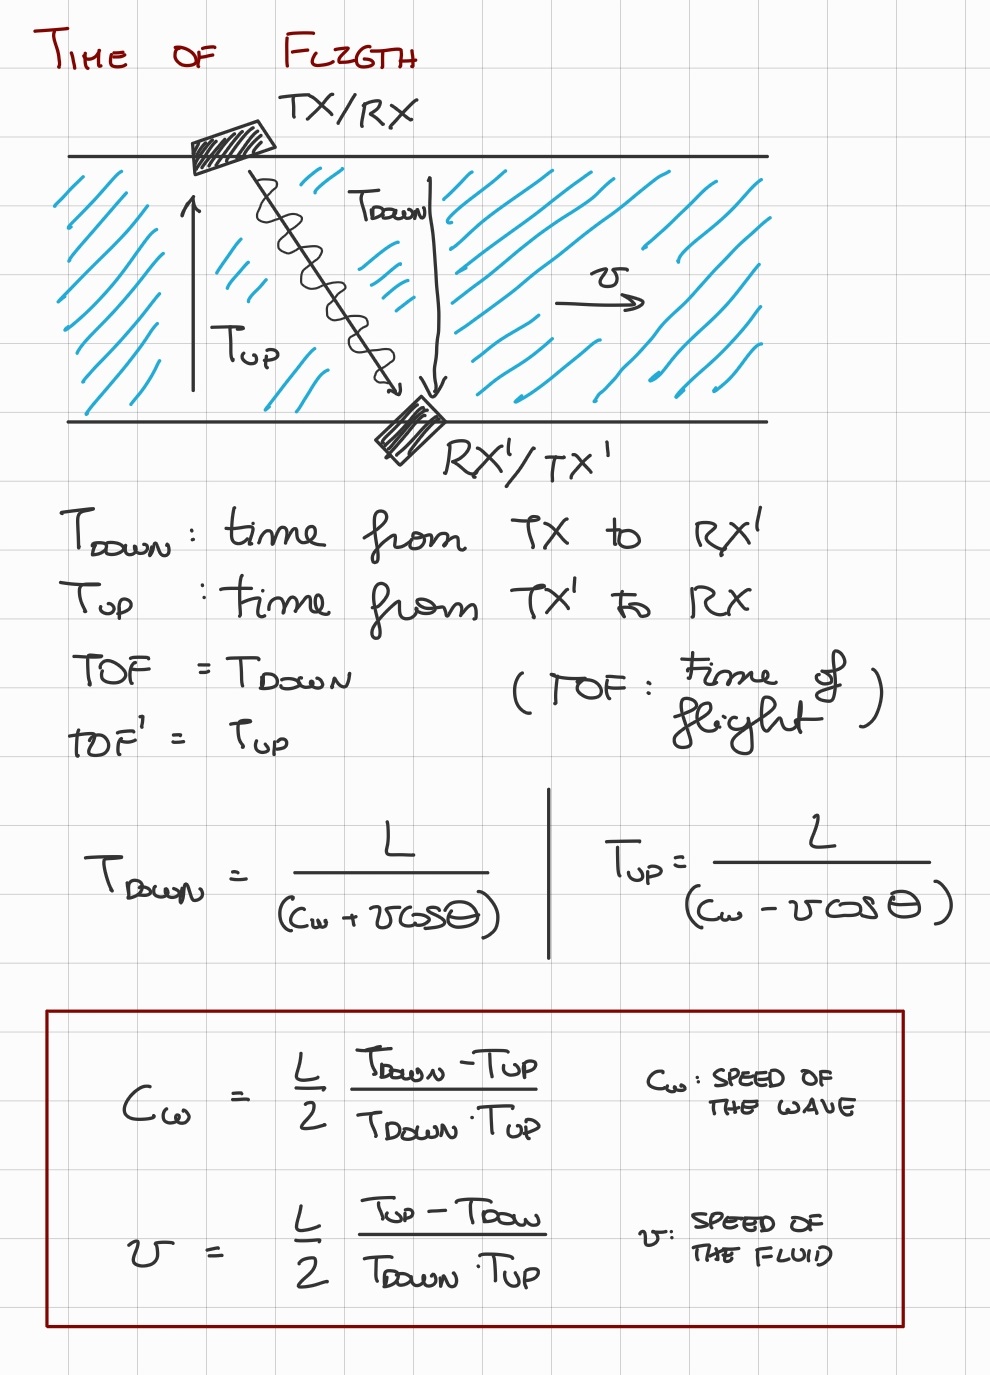 TIME OF FLIGTH
TX/RX
T_DOWN
v
T_UP
RX'/TX'
T_DOWN : time from TX to RX'
T_UP : time from TX' to RX
TOF = T_DOWN (TOF : time of flight)
TOF' = T_UP
T_DOWN = L / (C_w + v cos θ) | T_UP = L / (C_w - v cos θ)
C_w = L/2 (T_DOWN - T_UP) / (T_DOWN · T_UP) C_w : SPEED OF THE WAVE
v = L/2 (T_UP - T_DOW) / (T_DOWN · T_UP) v : SPEED OF THE FLUID